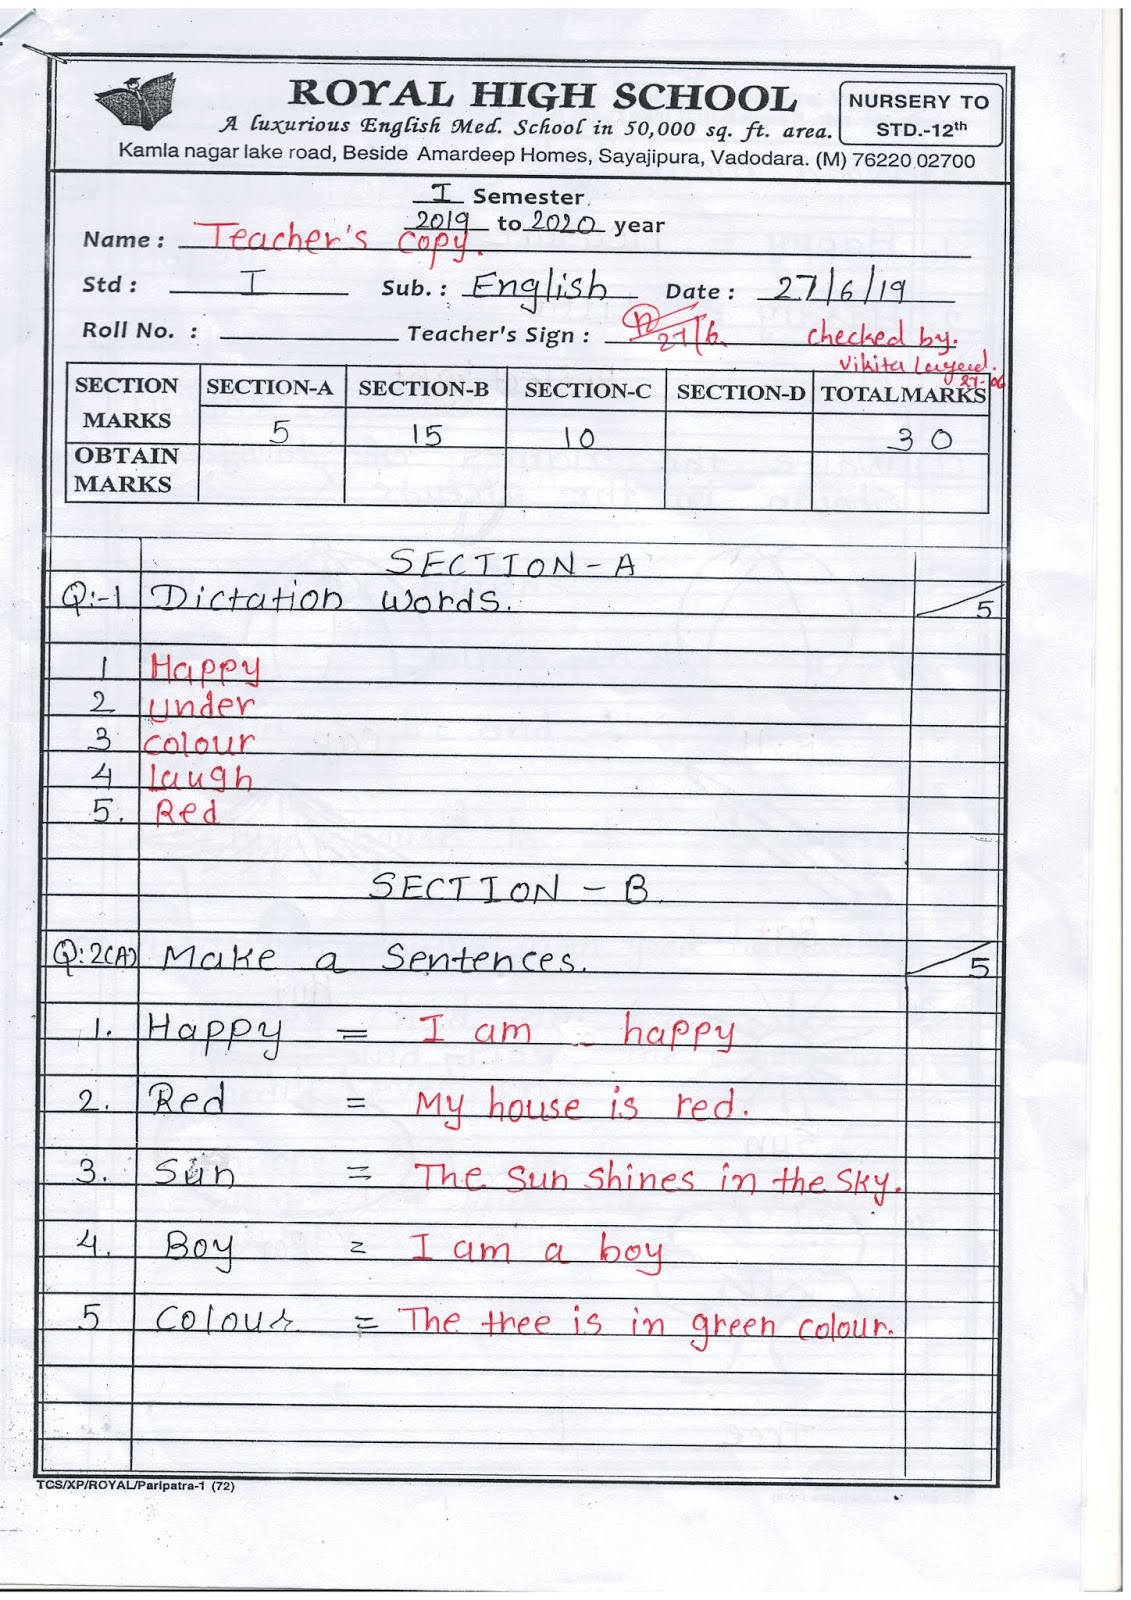 ROYAL HIGH SCHOOL
A luxurious English Med. School in 50,000 sq. ft. area.
NURSERY TO
STD.-12th
Kamla nagar lake road, Beside Amardeep Homes, Sayajipura, Vadodara. (M) 76220 02700
I Semester
2019 to 2020 year
Name : Teacher's copy.
Std : I Sub. : English Date : 27/6/19
Roll No. : Teacher's Sign : 27/6 checked by.
Vikita
27-06
SECTION MARKS SECTION-A SECTION-B SECTION-C SECTION-D TOTAL MARKS
5 15 10 30
OBTAIN MARKS
SECTION-A
Q:-1 Dictation words. 5
1 Happy
2 under
3 colour
4 laugh
5. Red
SECTION - B
Q:2(A) Make a Sentences. 5
1. Happy = I am happy
2. Red = My house is red.
3. Sun = The Sun Shines in the Sky.
4. Boy = I am a boy
5 Colour = The three is in green colour.
TCS/XP/ROYAL/Paripatra-1 (72)